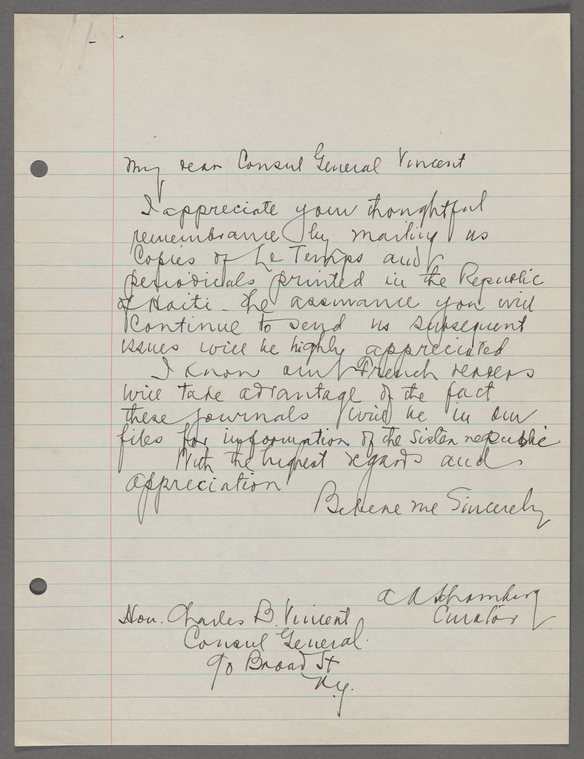 My dear Consul General Vincent
I appreciate your thoughtful
remembrance by mailing us
Copies of Le Temps and
periodicals printed in the Republic
of Haiti. The assurance you will
Continue to send us subsequent
issues will be highly appreciated
I know our French readers
will take advantage of the fact
these journals will be in our
files for information of the Sister republic
With the highest regards and
appreciation
Believe me Sincerely
A A Schomburg
Curator
Hon. Charles B. Vincent
Consul General.
90 Broad St
N.Y.